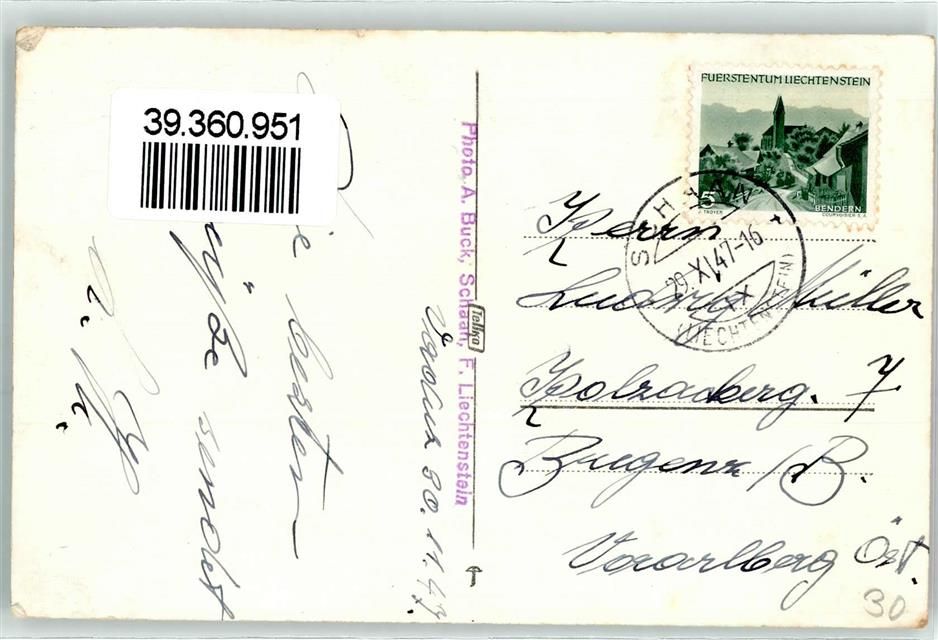 39.360.951
Die besten
Grüße sendet
Vaduz 30.11.47
Photo A. Buck, Schaan, F. Liechtenstein
Tellko
FUERSTENTUM LIECHTENSTEIN
5
BENDERN
J. TROYER
COURVOISIER S.A.
SCHAAN
29.XI.47-16
(LIECHTENSTEIN)
Herrn
Ludwig Müller
Holzackerg. 7
Bregenz /B.
Vorarlberg Öst.
30